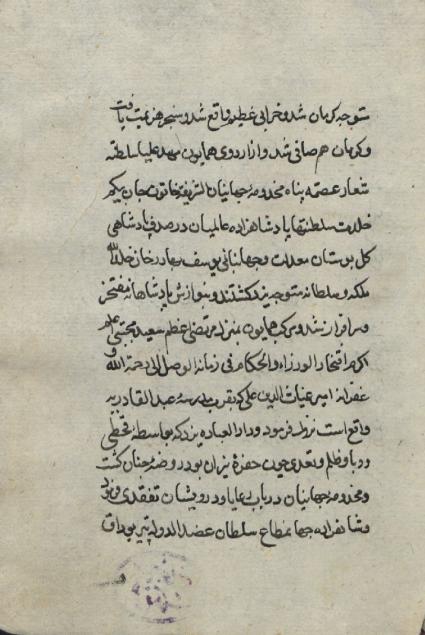 متوجه کرمان شد و خرابی عظیم واقع شد و سنجر هزیمت یافت
و کرمان هم صافی شد و از اردوی همایون مهد علیا سلطنه
شعار عصمة پناه مخدومه جهانیان الشریفه خاتون جان بیکم
خلدت سلطنتها با دشاهزاده عالمیان در صدف پادشاهی
کل بوستان معدلت و جهانبانی یوسف بهادر خان خلد الله
ملکه و سلطانه متوجه یزد کشتند و بنوازش پادشاهانه مفتخر
و سرافراز شد و مرکب همایون بمنزل مرتضی اعظم سعید مجتبی اعلم
اکرم افتخار الوزراء و الحکام فی زمانه الواصل الی رحمة الله و
غفرانه امیر غیاث الدین علی که بقرب مدرسه عبد القادریه
واقع است نزول فرمود و دار العباده یزد که بواسطه قحطی
و وبا و ظلم و تعدی چون حفرة نیران بود روضه جنان کشت
و مخدومه جهانیان در باب رعایا و درویشان تفقدی فرمود
و شاهزاده جهانمطاع سلطان عضد الدوله پیر بوداق